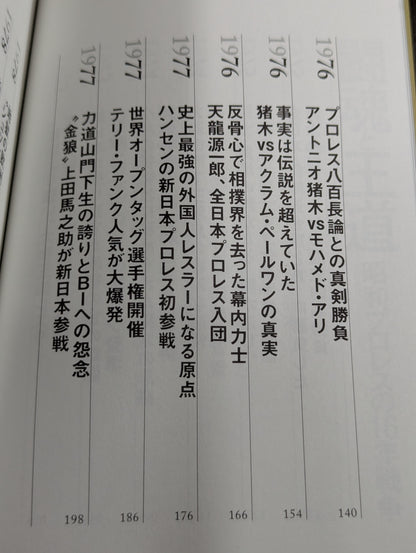 1976
プロレス八百長論との真剣勝負
アントニオ猪木VSモハメド・アリ
140
1976
事実は伝説を超えていた
猪木VSアクラム・ペールワンの真実
154
1976
反骨心で相撲界を去った幕内力士
天龍源一郎、全日本プロレス入団
166
1977
史上最強の外国人レスラーになる原点
ハンセンの新日本プロレス初参戦
176
1977
世界オープンタッグ選手権開催
テリー・ファンク人気が大爆発
186
1977
力道山門下生の誇りとBIへの怨念
〝金狼〟上田馬之助が新日本参戦
198